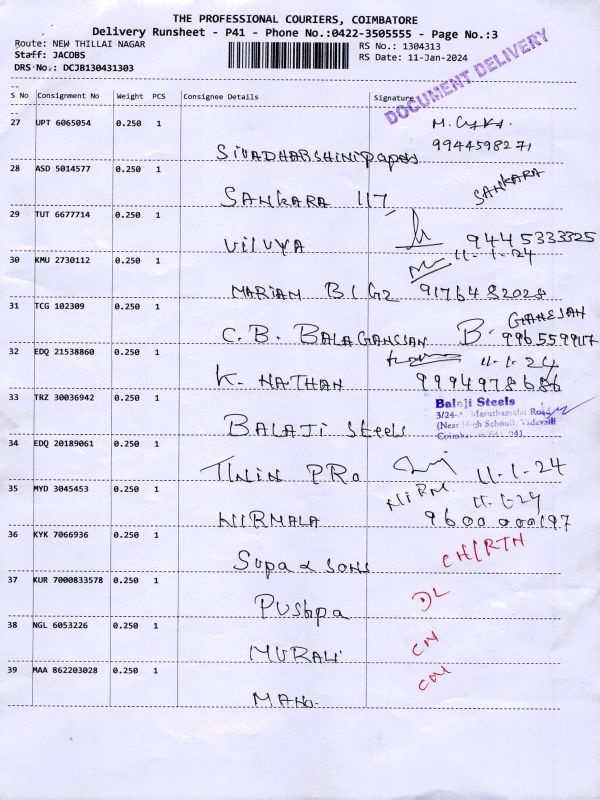 THE PROFESSIONAL COURIERS, COIMBATORE
Delivery Runsheet - P41 - Phone No.:0422-3505555 - Page No.:3
Route: NEW THILLAI NAGAR
Staff: JACOBS
DRS No.: DCJB130431303
RS No.: 1304313
RS Date: 11-Jan-2024
DOCUMENT DELIVERY
S No Consignment No Weight PCS Consignee Details Signature
27 UPT 6065054 0.250 1
SIVADHARSHINI papers 9944598271
28 ASD 5014577 0.250 1
SANKARA 117 SANKARA
29 TUT 6677714 0.250 1
VILUYA 9445333325
30 KMU 2730112 0.250 1 11-1-24
MARIAM BIG2 9176482028
31 TCG 102309 0.250 1 GANESAN
C.B. BALAGANESAN B. 9965599117
32 EDQ 21538860 0.250 1 11-1-24
K. NATHAN 9994978686
33 TRZ 30036942 0.250 1 Balaji Steels
3/24-A, Maruthamalai Road
(Near High School), Vadavalli
Coimbatore 641 041
BALAJI Steels
34 EDQ 20189061 0.250 1
TWIN PRO 11-1-24
35 MYD 3045453 0.250 1 NIRM 11-1-24
NIRMALA 9600000197
36 KYK 7066936 0.250 1
Supa & sons CH/RTN
37 KUR 7000833578 0.250 1
Pushpa DL
38 NGL 6053226 0.250 1
MURALI CN
39 MAA 862203028 0.250 1
MANO. CN